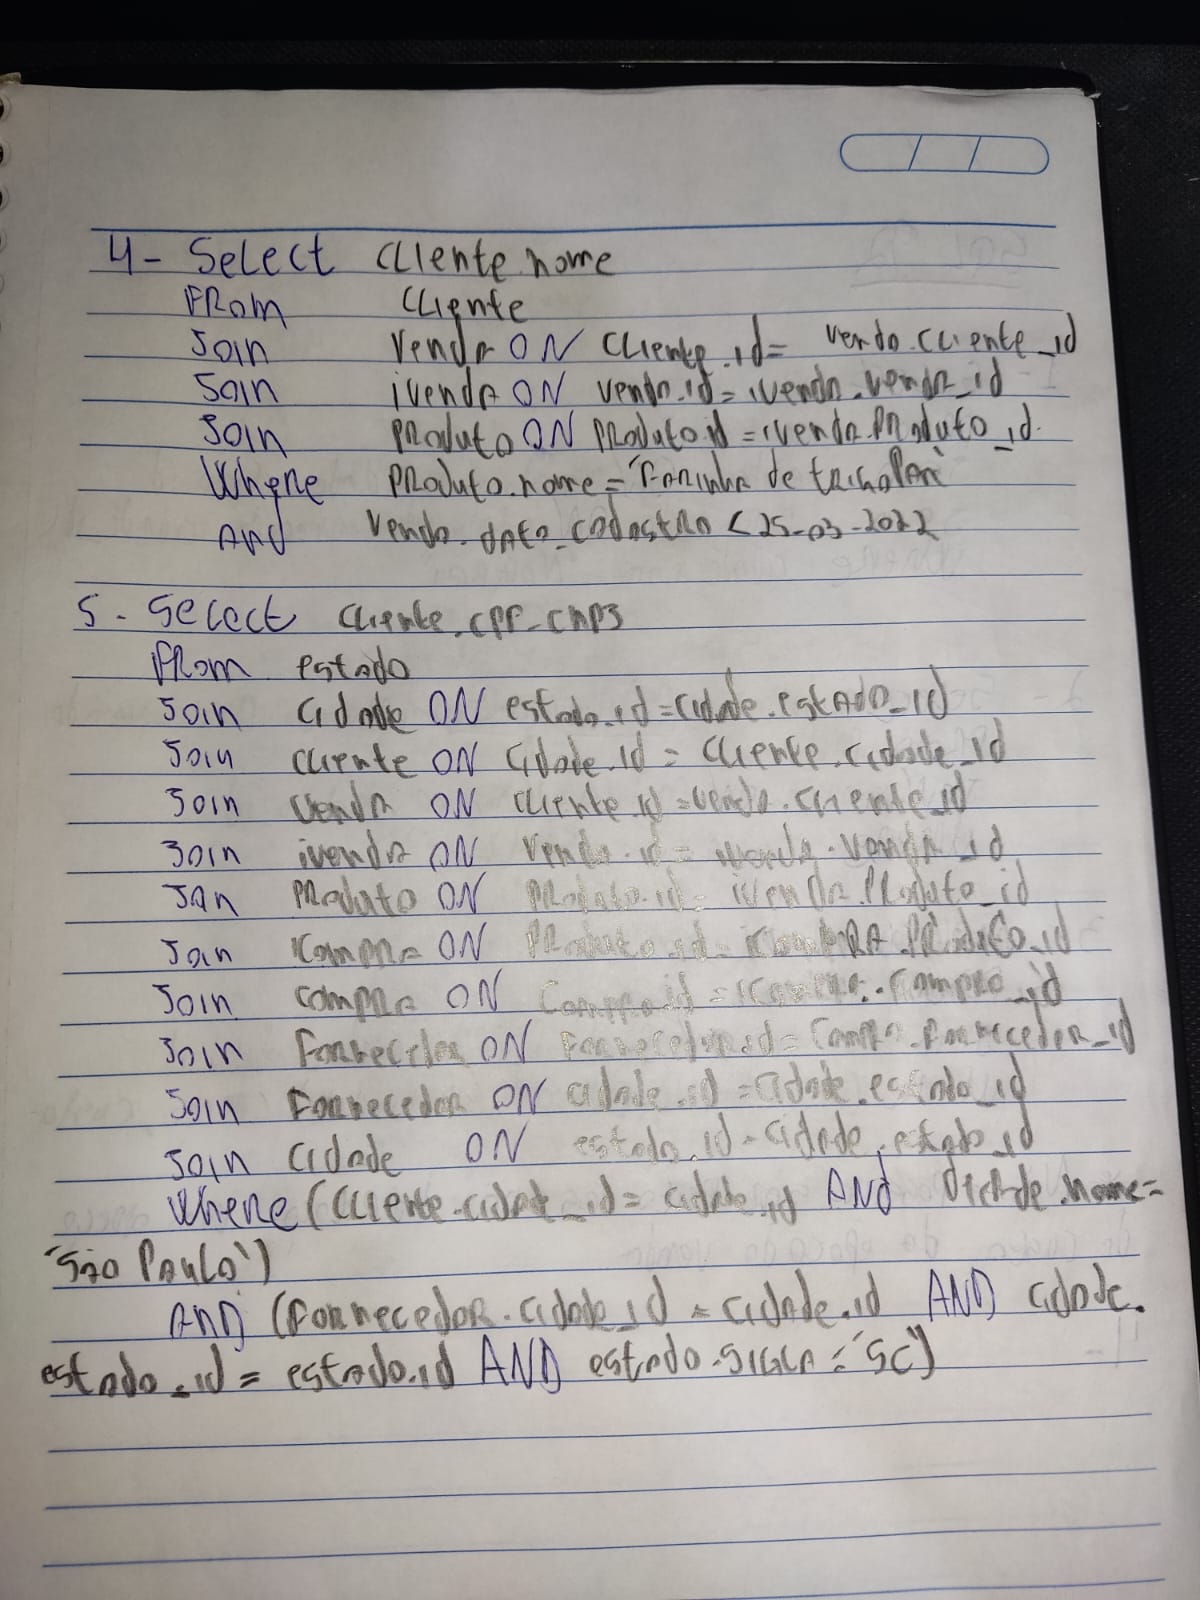 4- Select cliente.nome
From cliente
Join venda ON cliente.id = venda.cliente_id
Join ivenda ON venda.id = ivenda.venda_id
Join produto ON produto.id = ivenda.produto_id.
Where produto.nome = 'Farinha de trigo
And venda.data_cadastro < 25-03-2022
5- Select cliente.cpf_cnpj
From estado
Join cidade ON estado.id = cidade.estado_id
Join cliente ON cidade.id = cliente.cidade_id
Join venda ON cliente.id = venda.cliente_id
Join ivenda ON venda.id = ivenda.venda_id
Join produto ON produto.id = ivenda.produto_id
Join icompra ON produto.id = icompra.produto_id
Join compra ON compra.id = icompra.compra_id
Join fornecedor ON fornecedor.id = compra.fornecedor_id
Join fornecedor ON cidade.id = cidade.estado_id
Join cidade ON estado.id = cidade.estado_id
Where (cliente.cidade_id = cidade.id AND .nome =
'São Paulo')
AND (fornecedor.cidade_id = cidade.id AND cidade.
estado_id = estado.id AND estado.sigla = 'SC')